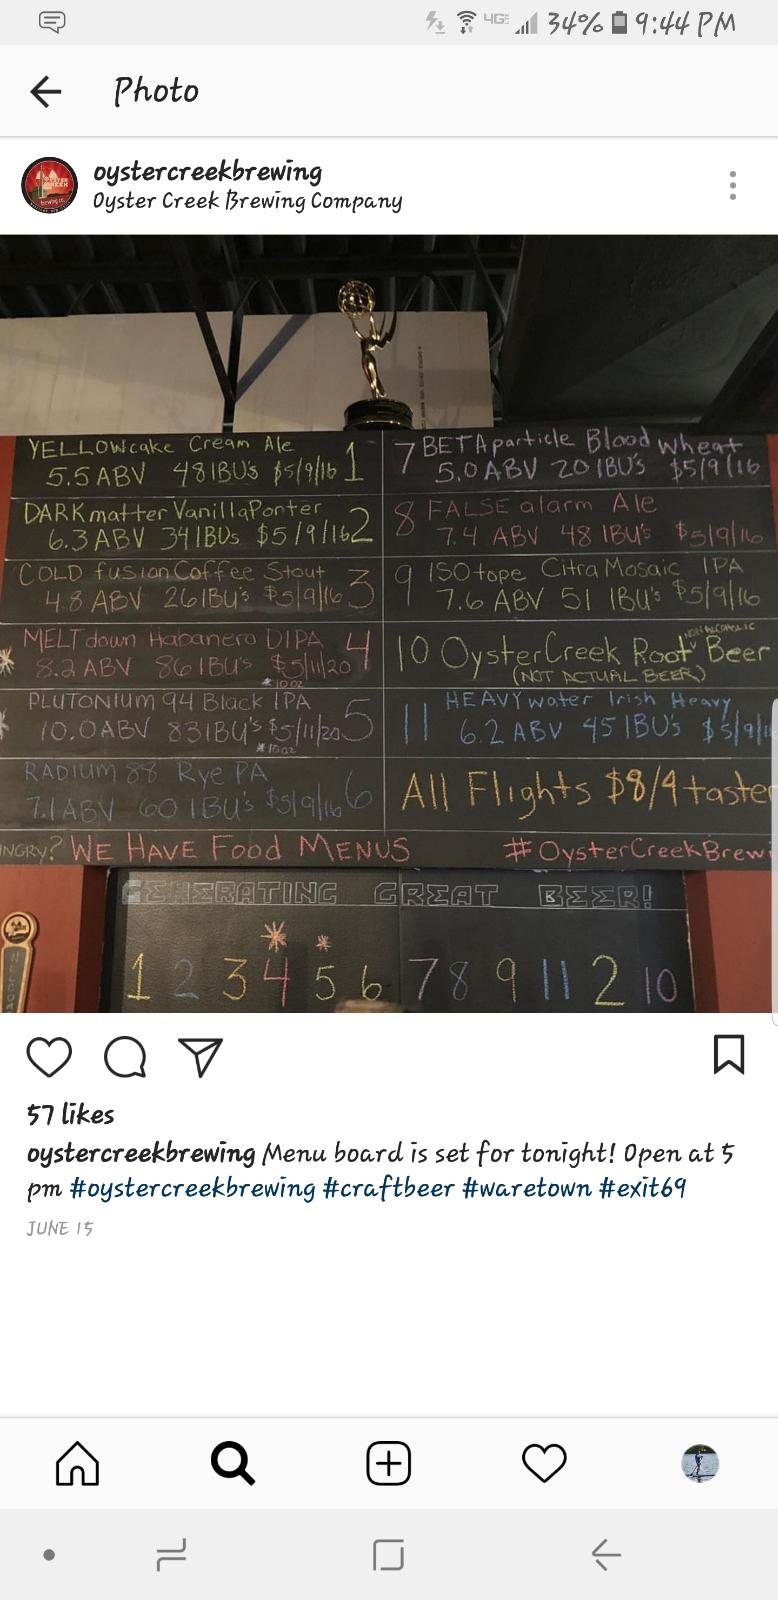 4GE 34% 9:44 PM
Photo
oystercreekbrewing
Oyster Creek Brewing Company
YELLOWcake Cream Ale 1
5.5 ABV 48 IBU's $5/9/16
DARKmatter Vanilla Porter 2
6.3 ABV 34 IBUs $5/9/16
COLD fusion Coffee Stout 3
4.8 ABV 26 IBU's $5/9/16
MELTdown Habanero DIPA 4
8.2 ABV 86 IBU's $5/11/20
*10oz
PLUTONIUM 94 Black IPA 5
10.0 ABV 83 IBU's $5/11/20
*10oz
RADIUM 88 Rye PA 6
7.1 ABV 60 IBU's $5/9/16
7 BETAparticle Blood wheat
5.0 ABV 20 IBU's $5/9/16
8 FALSE alarm Ale
7.4 ABV 48 IBU's $5/9/16
9 ISOtope Citra Mosaic IPA
7.6 ABV 51 IBU's $5/9/16
NON ALCOHOLIC
10 OysterCreek Root Beer
(NOT ACTUAL BEER)
11 HEAVYwater Irish Heavy
6.2 ABV 45 IBU's $5/9/1
All Flights $8/4taster
NGRY? WE HAVE Food MENUS #OysterCreekBrewi
GENERATING GREAT BEER!
1 2 3 4 5 6 7 8 9 11 2 10
57 likes
oystercreekbrewing Menu board is set for tonight! Open at 5
pm #oystercreekbrewing #craftbeer #waretown #exit69
JUNE 15